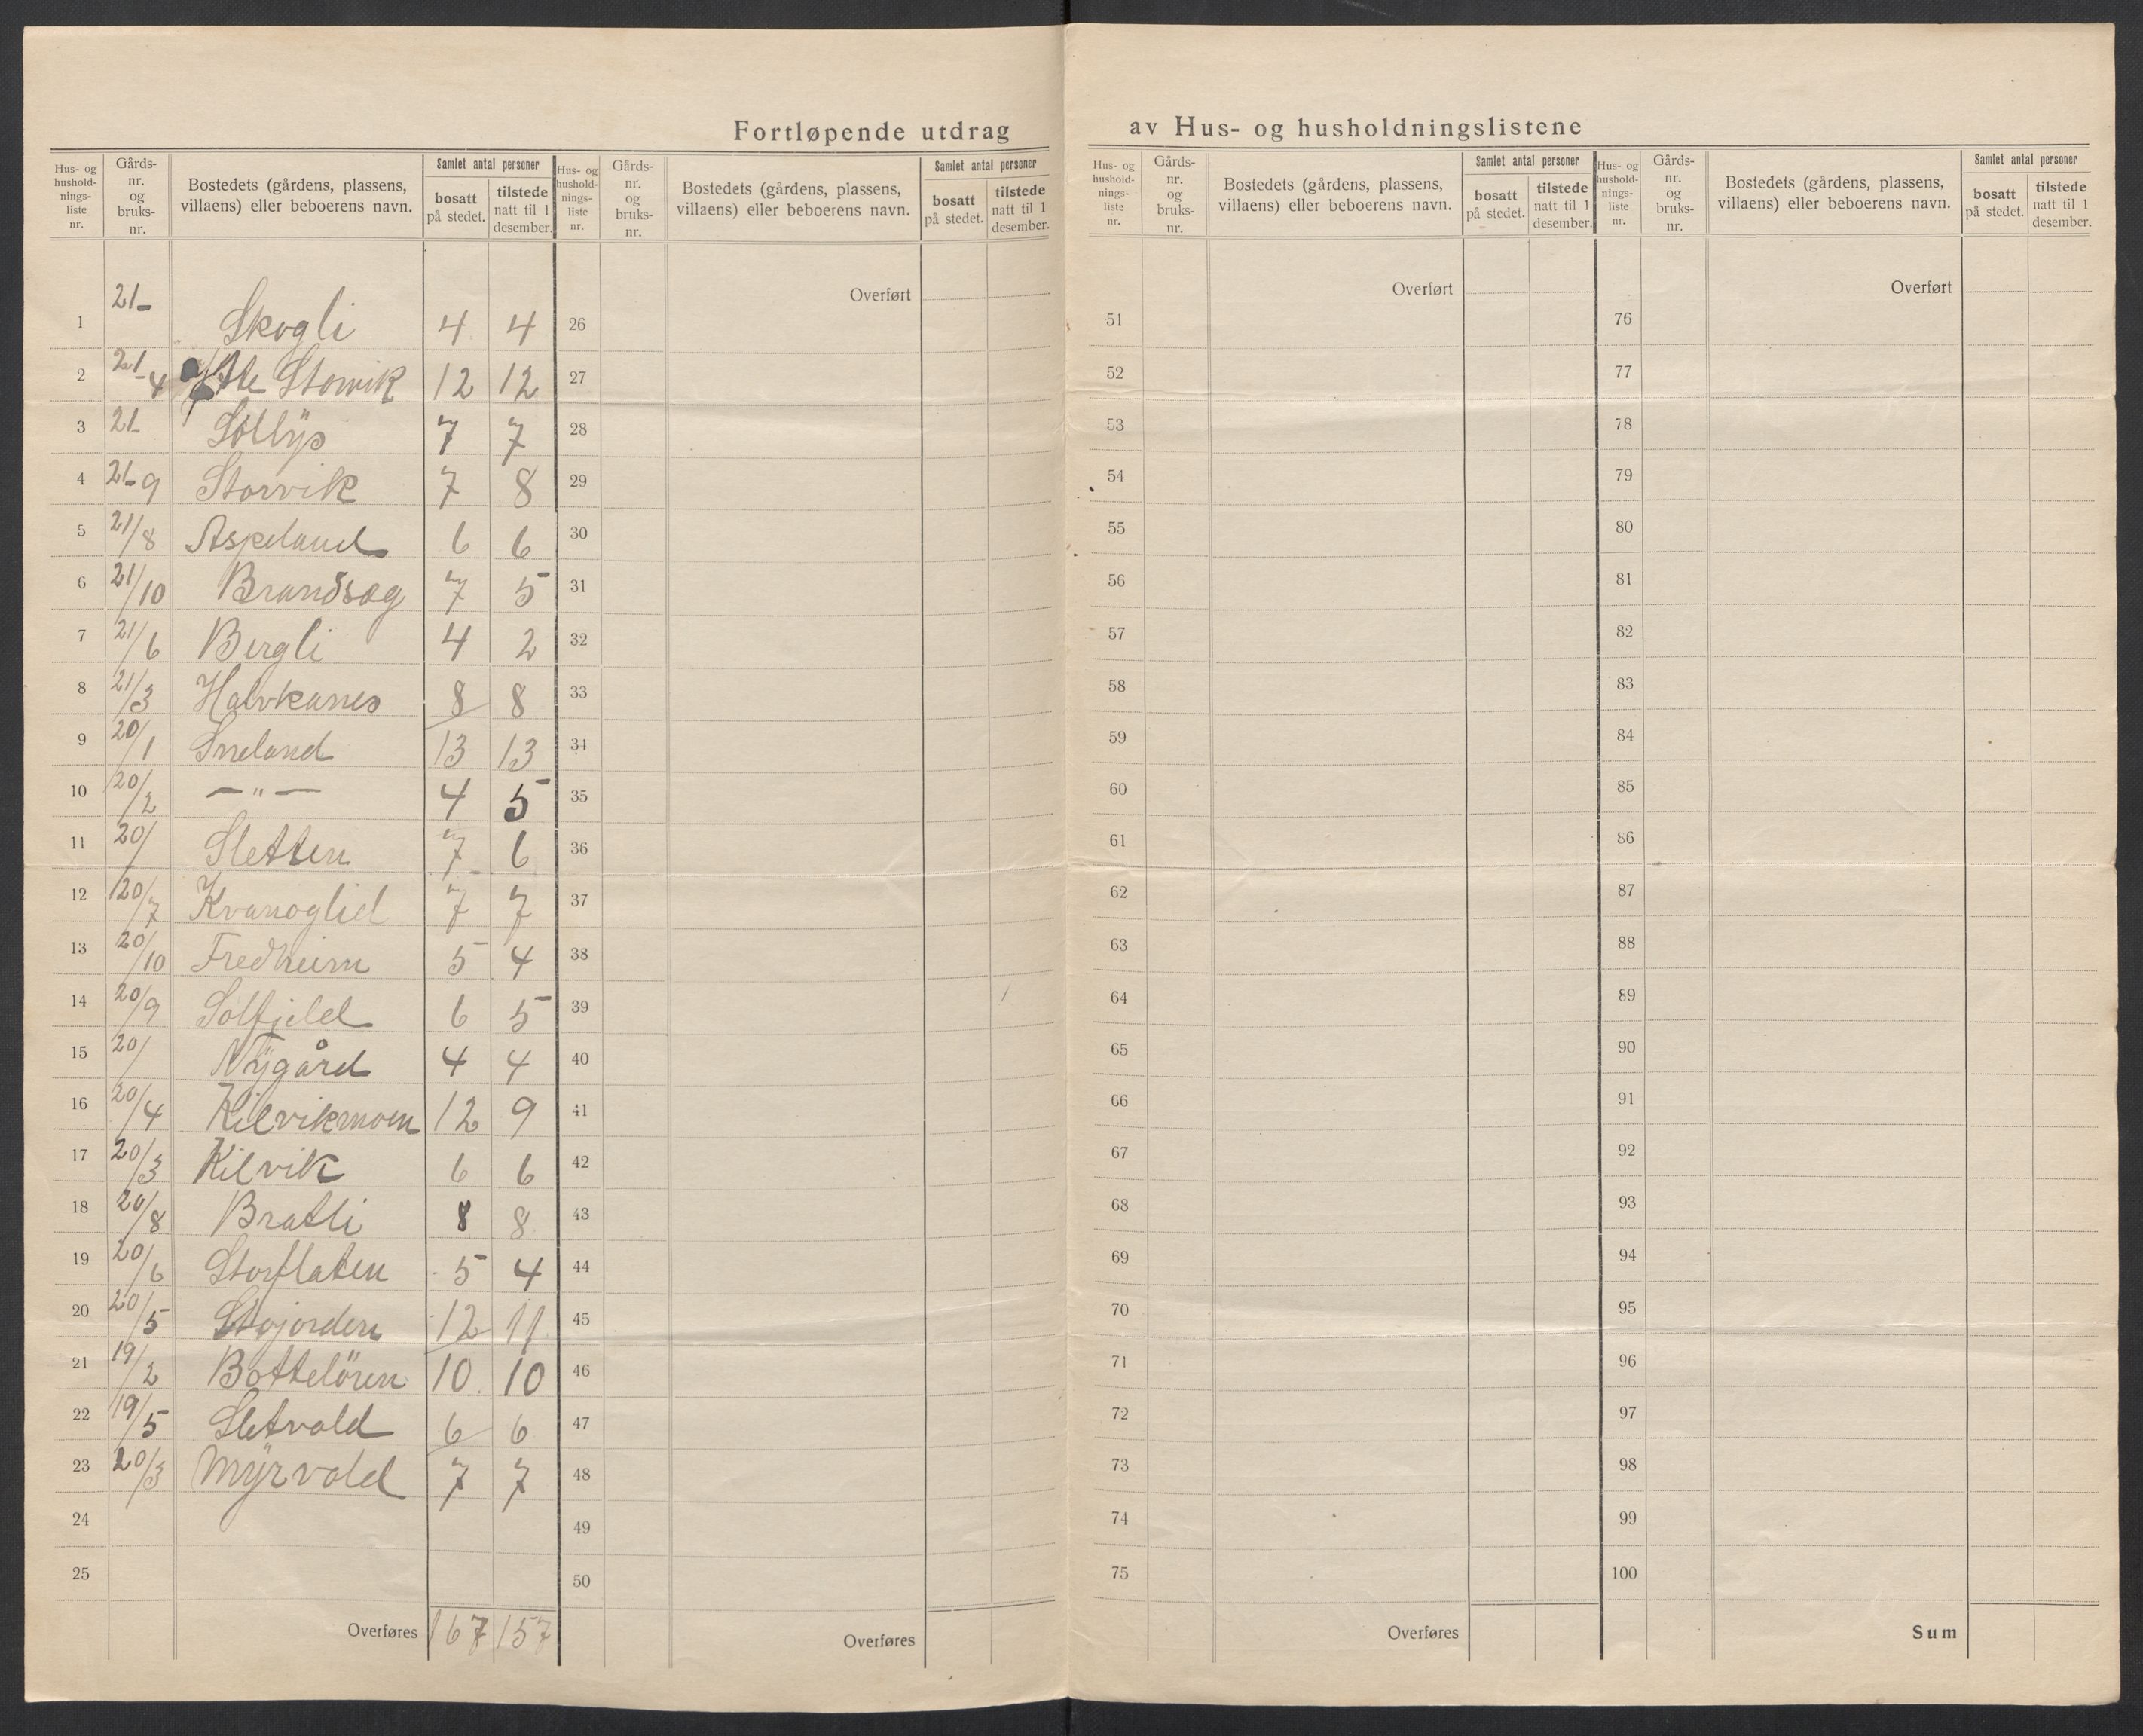 Fortløpende utdrag av Hus- og husholdningslistene
Hus- og husholdnings- liste nr. | Gårds- nr. og bruks- nr. | Bostedets (gårdens, plassens, villaens) eller beboerens navn. | Samlet antal personer | bosatt på stedet. | tilstede natt til 1 desember.
Hus- og husholdnings- liste nr. | Gårds- nr. og bruks- nr. | Bostedets (gårdens, plassens, villaens) eller beboerens navn. | Samlet antal personer | bosatt på stedet. | tilstede natt til 1 desember.
Hus- og husholdnings- liste nr. | Gårds- nr. og bruks- nr. | Bostedets (gårdens, plassens, villaens) eller beboerens navn. | Samlet antal personer | bosatt på stedet. | tilstede natt til 1 desember.
Hus- og husholdnings- liste nr. | Gårds- nr. og bruks- nr. | Bostedets (gårdens, plassens, villaens) eller beboerens navn. | Samlet antal personer | bosatt på stedet. | tilstede natt til 1 desember.
1 21- Skogli 4 4
2 21-4 Storvik 12 12
3 21- 7 7
4 21-9 Storvik 7 8
5 21/8 Aspeland 6 6
6 21/10 7 5
7 21/6 Bergli 4 2
8 21/3 Halvkanes 8 8
9 20/1 13 13
10 20/2 —"— 4 5
11 20/ Sletten 7 6
12 20/7 7 7
13 20/10 Fredheim 5 4
14 20/9 Solfjeld 6 5
15 20/ Nÿgård 4 4
16 20/4 Kilvikmoen 12 9
17 20/3 Kilvik 6 6
18 20/8 Bratli 8 8
19 20/6 Storflaten 5 4
20 20/5 12 11
21 19/2 Bottelören 10 10
22 19/5 Sletvold 6 6
23 20/3 Mÿrvold 7 7
24
25
Overføres 167 157
Overført
26
27
28
29
30
31
32
33
34
35
36
37
38
39
40
41
42
43
44
45
46
47
48
49
50
Overføres
Overført
51
52
53
54
55
56
57
58
59
60
61
62
63
64
65
66
67
68
69
70
71
72
73
74
75
Overføres
Overført
76
77
78
79
80
81
82
83
84
85
86
87
88
89
90
91
92
93
94
95
96
97
98
99
100
Sum